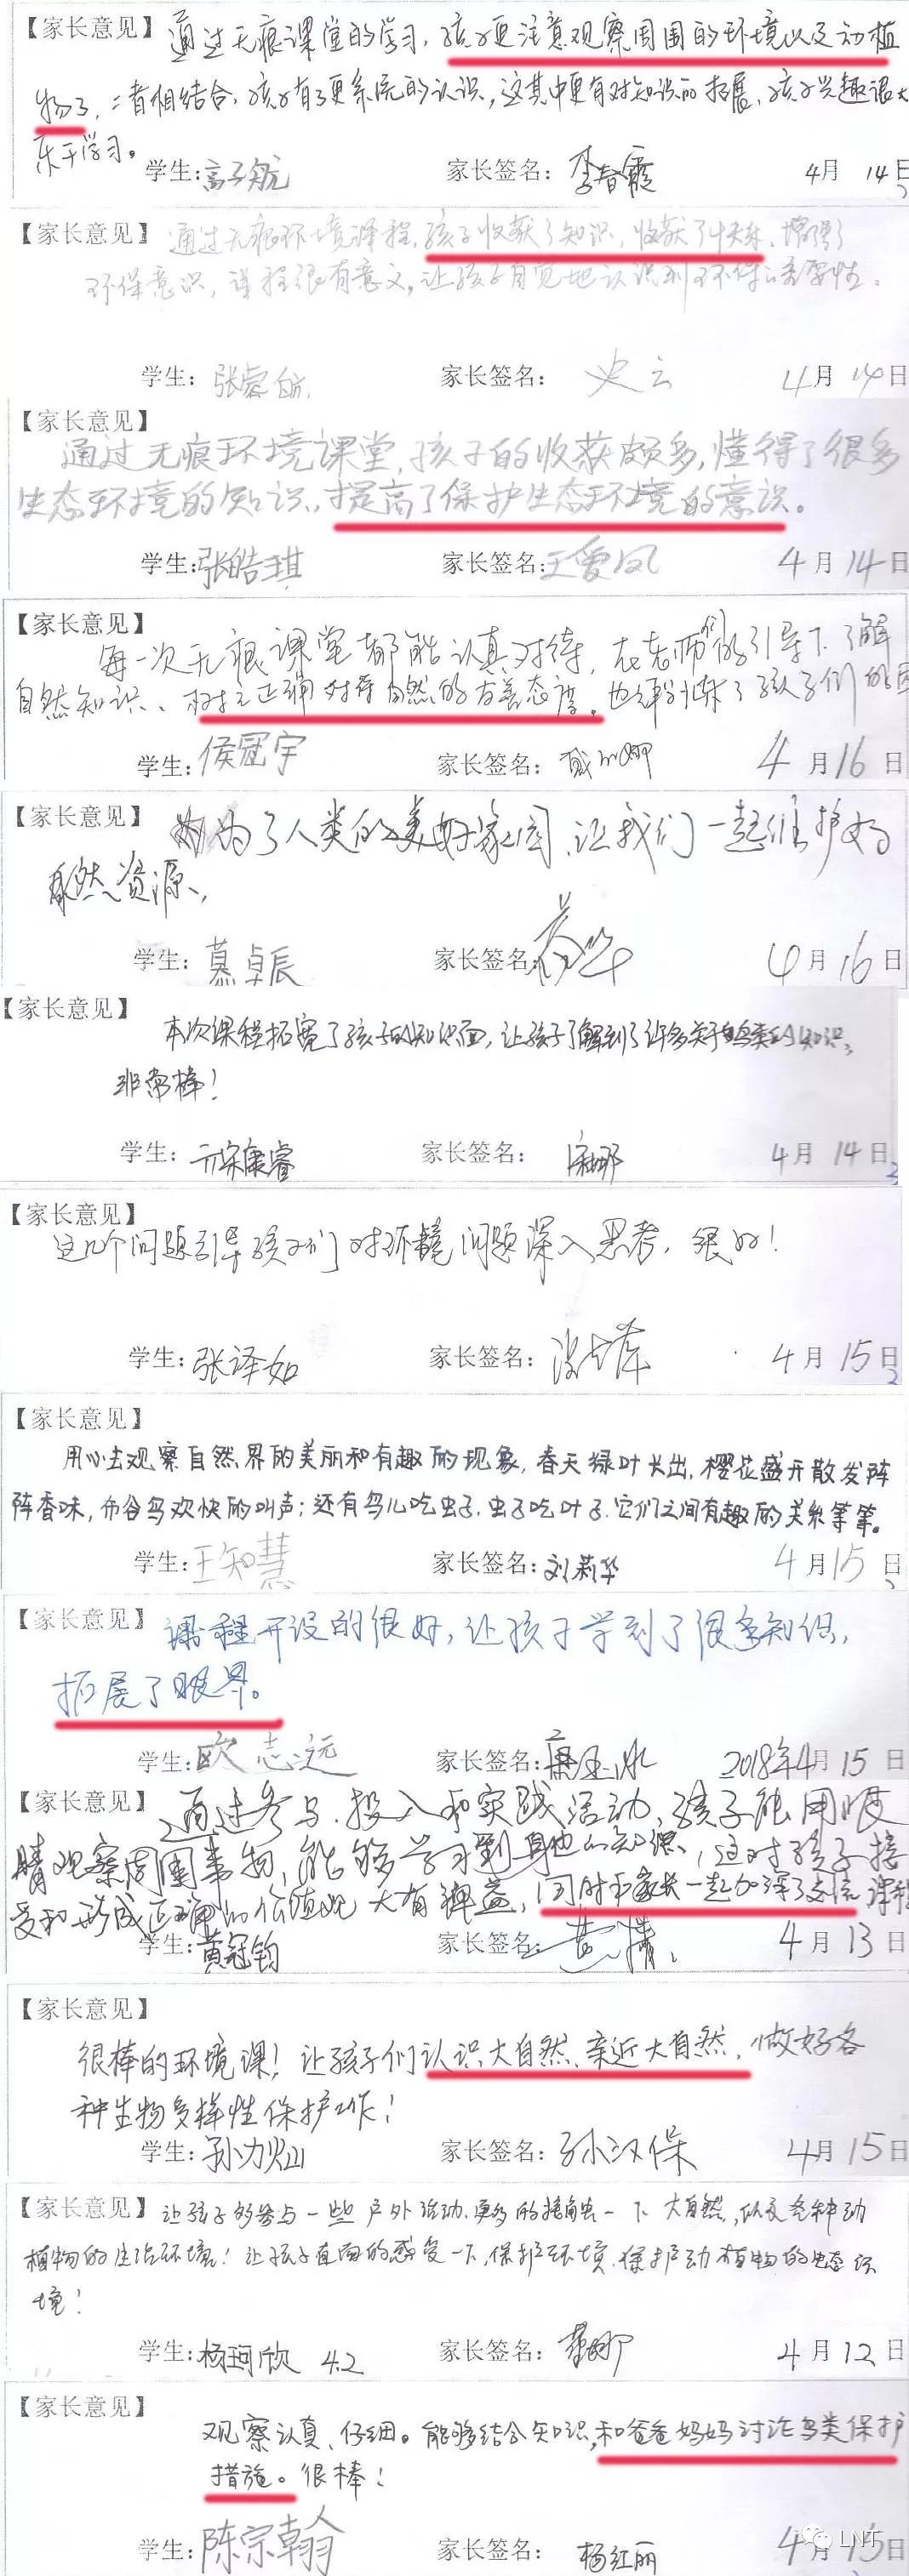 【家长意见】 通过无痕课堂的学习，孩子更注意观察周围的环境以及动植
物了，二者相结合，孩子有了更系统的认识，这其中更有对知识的拓展，孩子兴趣很大
乐于学习。
学生：高子航 家长签名：李春霞 4月 14日
【家长意见】 通过无痕环境课程，孩子收获了知识，收获了快乐，增强了
环保意识，课程很有意义，让孩子自觉地认识到环保的重要性。
学生：张睿航 家长签名：史云 4月 14日
【家长意见】
通过无痕环境课堂，孩子的收获颇多，懂得了很多
生态环境的知识，提高了保护生态环境的意识。
学生：张皓琪 家长签名：王爱凤 4月 14日
【家长意见】
每一次无痕课堂都能认真对待，在老师们的引导下了解
自然知识、树立正确对待自然的友善态度。也锻炼了孩子们的
学生：侯冠宇 家长签名： 4月16日
【家长意见】 为了人类的美好家园，让我们一起维护好
自然资源。
学生：慕卓辰 家长签名： 4月16日
【家长意见】
本次课程拓宽了孩子的知识面，让孩子了解到了许多关于鸟类的知识，
非常棒！
学生：亓宋康睿 家长签名：宋娜 4月 14日
【家长意见】
这几个问题引导孩子们对环境问题深入思考，很好！
学生：张译如 家长签名： 4月 15日
【家长意见】
用心去观察自然界的美丽和有趣的现象，春天绿叶长出，樱花盛开散发阵
阵香味，布谷鸟欢快的叫声；还有鸟儿吃虫子，虫子吃叶子，它们之间有趣的关系等等。
学生：王知慧 家长签名：刘莉华 4月15日
【家长意见】 课程开设的很好，让孩子学到了很多知识，
拓展了眼界。
学生：欧志远 家长签名： 2018年4月 15日
【家长意见】 通过参与、投入和实践活动，孩子能用眼
睛观察周围事物，能够学习到身边的知识，这对孩子接
受和形成正确的价值观大有裨益，同时和家长一起加深了交流
学生：黄冠钧 家长签名： 4月13日
【家长意见】
很棒的环境课！让孩子们认识大自然、亲近大自然，做好各
种生物多样性保护工作！
学生：孙力灿 家长签名：孙汉保 4月15日
【家长意见】 让孩子多参与一些户外活动，更多的接触一下大自然，以及各种动
植物的生活环境！让孩子直面的感受一下，保护环境，保护动植物的生态环
境！
学生：杨珂欣 4.2 家长签名： 4月12日
【家长意见】
观察认真、仔细。能够结合知识，和爸爸妈妈讨论鸟类保护
措施。很棒！
学生：陈宗翰 家长签名：杨红丽 4月15日
LNT